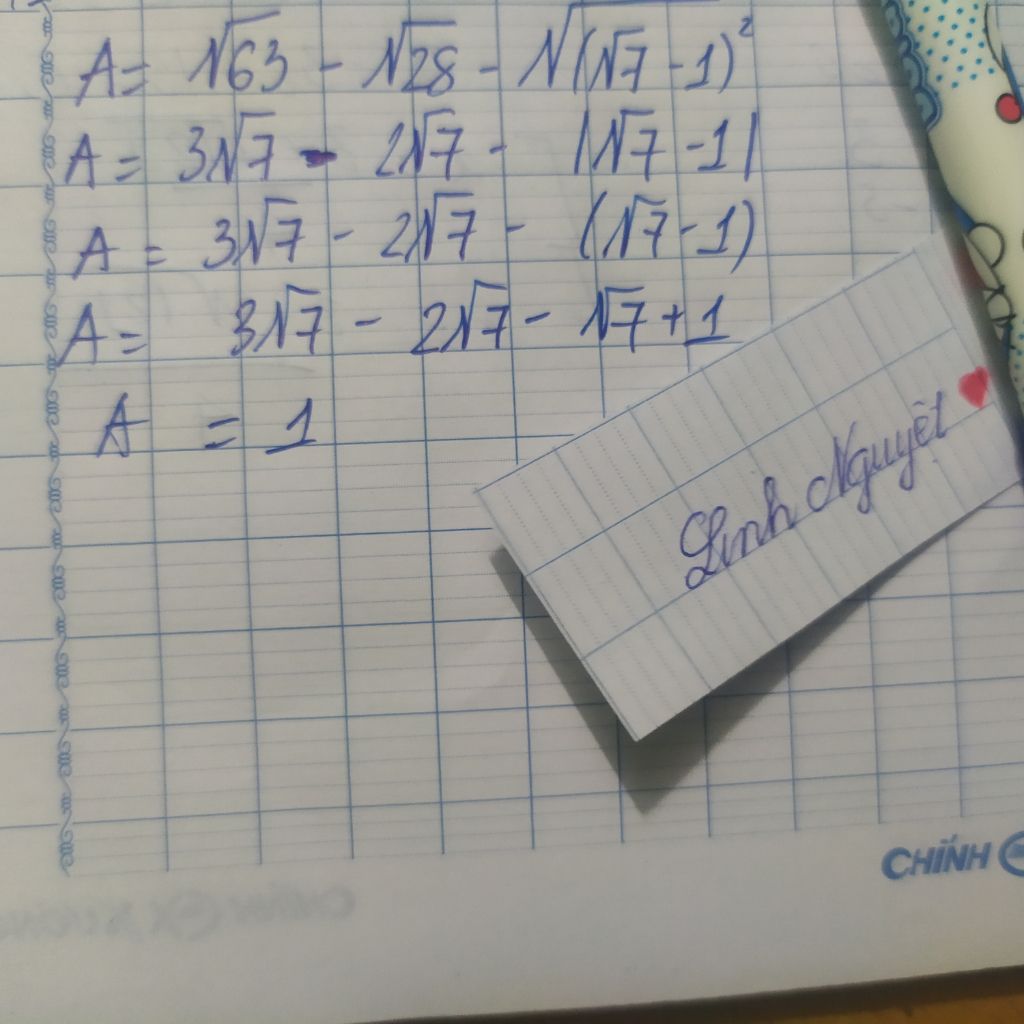 A = √63 - √28 - √(√7 - 1)²
A = 3√7 - 2√7 - |√7 - 1|
A = 3√7 - 2√7 - (√7 - 1)
A = 3√7 - 2√7 - √7 + 1
A = 1
Linh Nguyệt
CHÍNH